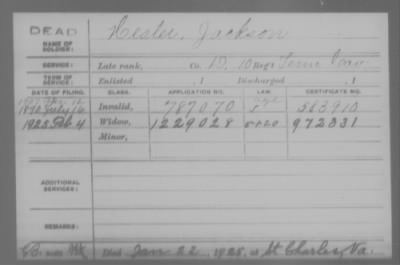 DEAD
NAME OF SOLDIER: Hester, Jackson
SERVICE: Late rank, Co. D, 10 Reg't Tenn Cav
TERM OF SERVICE: Enlisted , 1 Discharged , 1
DATE OF FILING. CLASS. APPLICATION NO. LAW. CERTIFICATE NO.
1890 July Invalid, 787070 583910
1925 Feb 4 Widow, 1229028 972331
Minor,
ADDITIONAL SERVICES:
REMARKS:
Died Jan 22, 1925, at St Charles, Va.